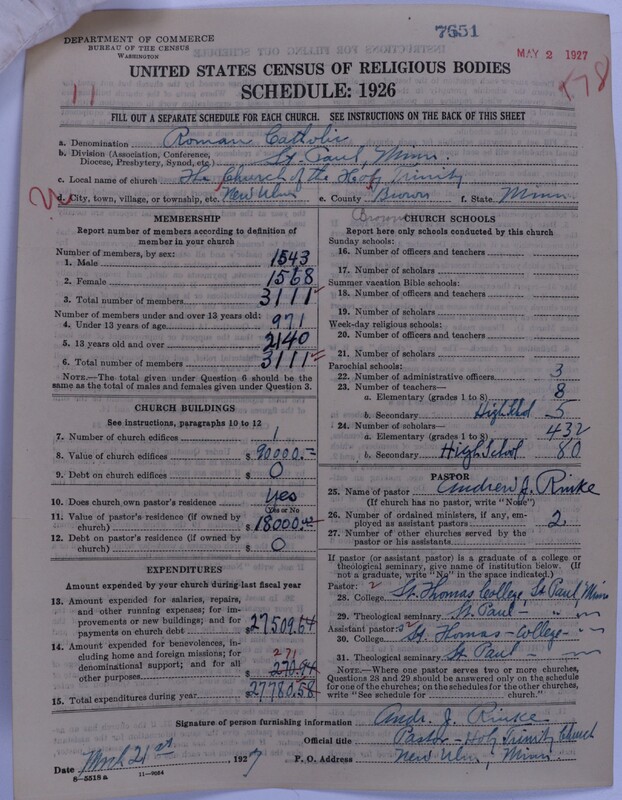 7651
DEPARTMENT OF COMMERCE
BUREAU OF THE CENSUS
WASHINGTON
MAY 2 1927
UNITED STATES CENSUS OF RELIGIOUS BODIES
SCHEDULE: 1926
11
178
FILL OUT A SEPARATE SCHEDULE FOR EACH CHURCH. SEE INSTRUCTIONS ON THE BACK OF THIS SHEET
a. Denomination Roman Catholic
b. Division (Association, Conference, Diocese, Presbytery, Synod, etc.) St. Paul, Minn.
c. Local name of church The Church of the Holy Trinity
d. City, town, village, or township, etc. New Ulm e. County Brown f. State Minn.
Brown
MEMBERSHIP
Report number of members according to definition of member in your church
Number of members, by sex:
1. Male 1543
2. Female 1568
3. Total number of members 3111
Number of members under and over 13 years old:
4. Under 13 years of age 971
5. 13 years old and over 2140
6. Total number of members 3111
NOTE.—The total given under Question 6 should be the same as the total of males and females given under Question 3.
CHURCH BUILDINGS
See instructions, paragraphs 10 to 12
7. Number of church edifices 1
8. Value of church edifices $ 90000.=
9. Debt on church edifices $ 0
10. Does church own pastor's residence? Yes
(Yes or No)
11. Value of pastor's residence (if owned by church) $ 18000.
12. Debt on pastor's residence (if owned by church) $ 0
EXPENDITURES
Amount expended by your church during last fiscal year
13. Amount expended for salaries, repairs, and other running expenses; for improvements or new buildings; and for payments on church debt $ 27509.64
14. Amount expended for benevolences, including home and foreign missions; for denominational support; and for all other purposes 271 $ 270.94
15. Total expenditures during year $ 27780.58
CHURCH SCHOOLS
Report here only schools conducted by this church
Sunday schools:
16. Number of officers and teachers
17. Number of scholars
Summer vacation Bible schools:
18. Number of officers and teachers
19. Number of scholars
Week-day religious schools:
20. Number of officers and teachers
21. Number of scholars
Parochial schools:
22. Number of administrative officers 3
23. Number of teachers—
a. Elementary (grades 1 to 8) 8
b. Secondary High Schl 5
24. Number of scholars—
a. Elementary (grades 1 to 8) 432
b. Secondary High School 80
PASTOR
25. Name of pastor Andrew J. Rinke
(If church has no pastor, write "None")
26. Number of ordained ministers, if any, employed as assistant pastors 2
27. Number of other churches served by the pastor or his assistants
If pastor (or assistant pastor) is a graduate of a college or theological seminary, give name of institution below. (If not a graduate, write "No" in the space indicated.)
Pastor: 2
28. College St. Thomas College St. Paul, Minn
29. Theological seminary St. Paul - " -
Assistant pastor: 2
30. College St. Thomas - College -
31. Theological seminary St. Paul -
NOTE.—Where one pastor serves two or more churches, Questions 28 and 29 should be answered only on the schedule for one of the churches; on the schedules for the other churches, write "See schedule for church."
Signature of person furnishing information Andr. J. Rinke
Official title Pastor - Holy Trinity Church
Date Mrch 21st, 1927 P. O. Address New Ulm, Minn
8-5518a 11-9064